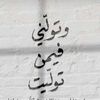 وتولّني
فيمن
تولّيت